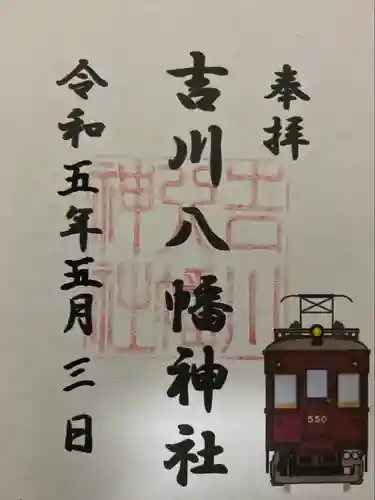 奉拝
吉川八幡神社
令和五年五月三日
吉川八幡神社
550